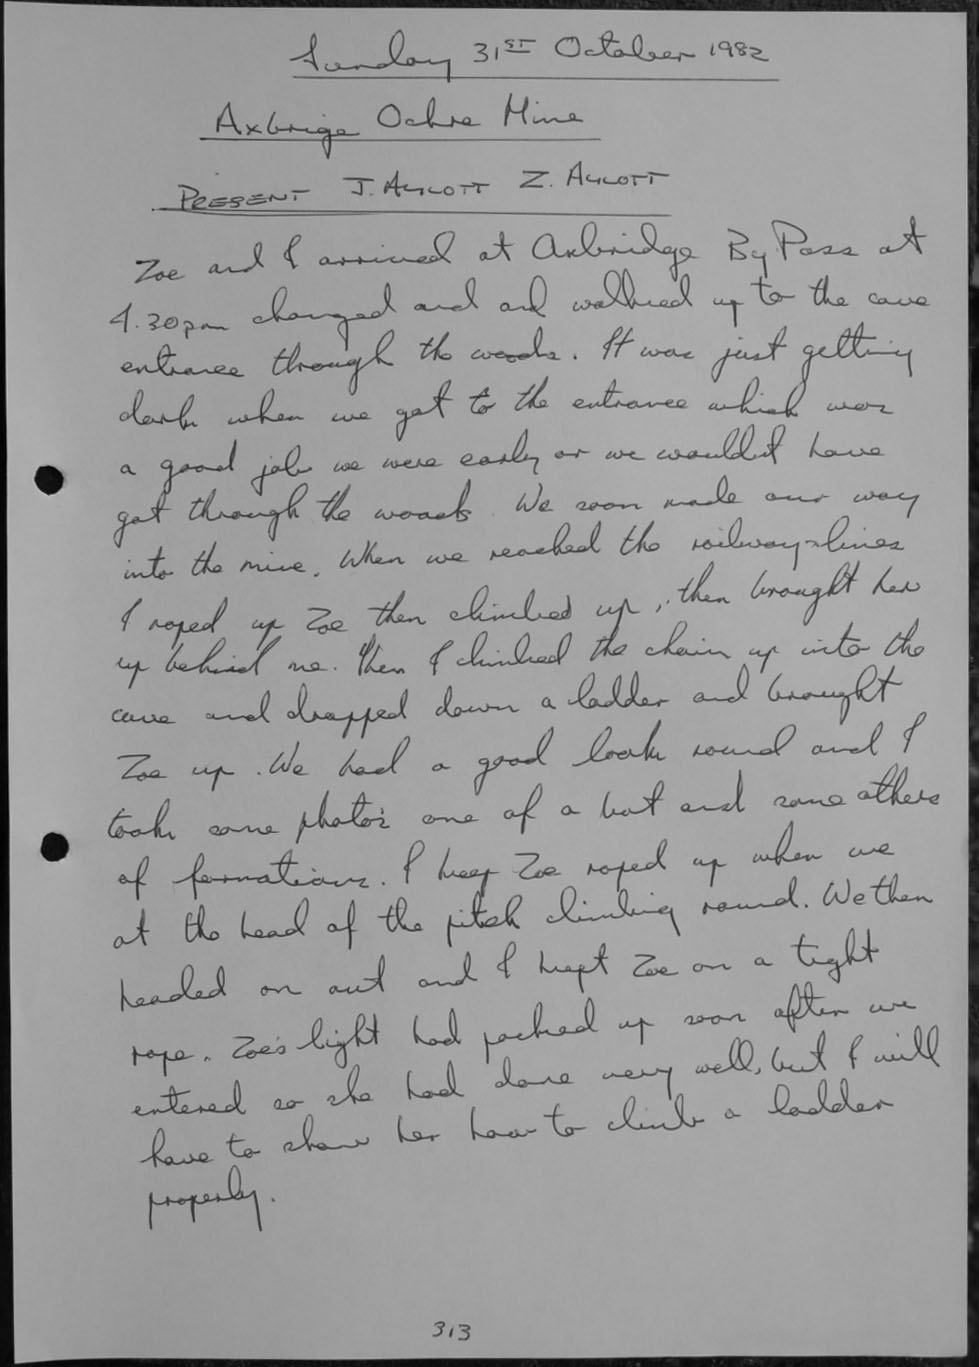 Sunday 31ST October 1982
Axbrige Ochre Mine
PRESENT J. AYLCOTT Z. AYLCOTT
Zoe and I arrived at Axbridge By Pass at
4.30pm changed and and walked up to the cave
entrance through the woods. It was just getting
dark when we got to the entrance which was
a good job we were early or we wouldn't have
got through the woods. We soon made our way
into the mine. When we reached the railway-lines
I roped up Zoe then climbed up, then brought her
up behind me. Then I climbed the chain up into the
cave and dropped down a ladder and brought
Zoe up. We had a good look round and I
took some photo's one of a bat and some others
of formations. I keep Zoe roped up when we
at the head of the pitch climbing round. We then
headed on out and I kept Zoe on a tight
rope. Zoe's light had packed up soon after we
entered so she had done very well, but I will
have to show her how to climb a ladder
properly.
313